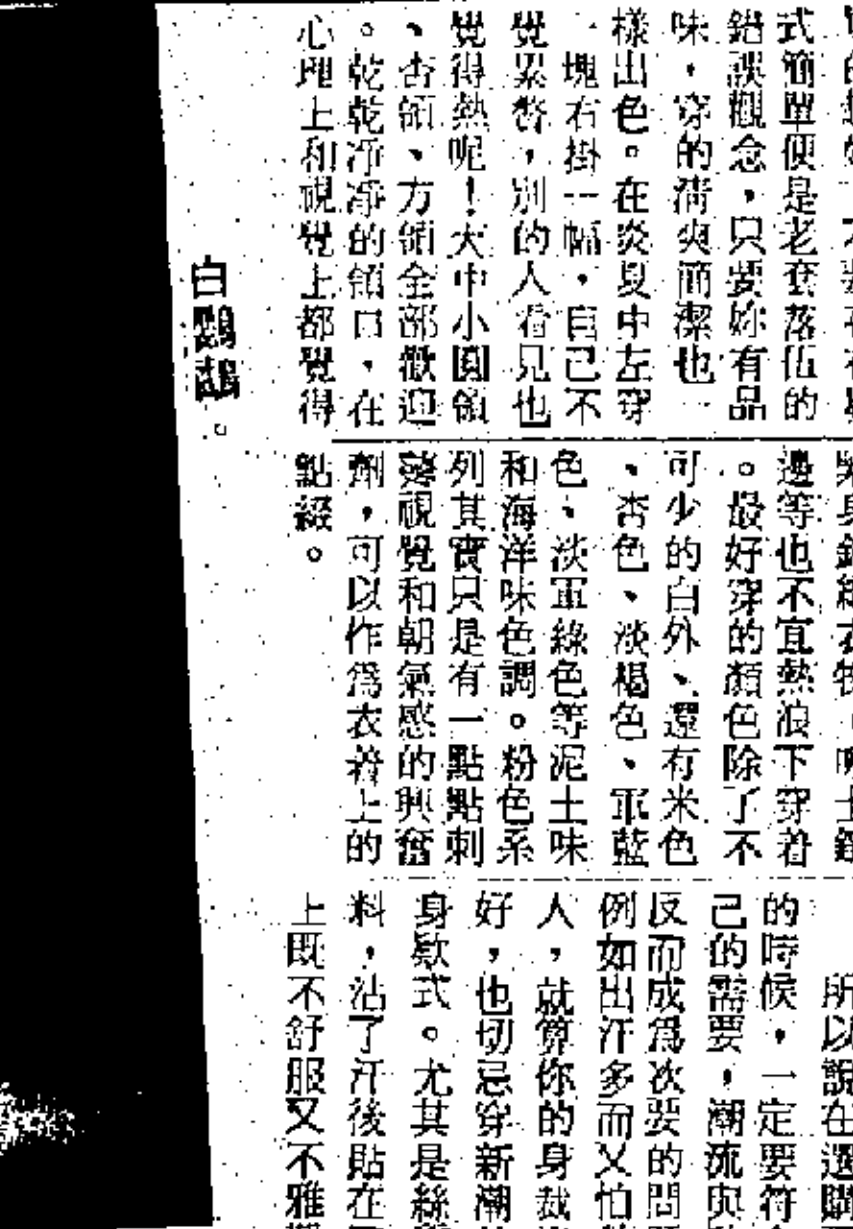 式簡單便是老套落伍的
錯誤觀念,只要妳有品
味,穿的清爽簡潔也一
樣出色。在炎夏中左穿
一塊右掛一幅,自己不
覺累贅,別的人看見也
覺得熱呢!大中小圓領
、杏領、方領全部歡迎
。乾乾淨淨的領口,在
心理上和視覺上都覺得
白鸚鵡。
邊等也不宜熱浪下穿着
。最好穿的顏色除了不
可少的白外、還有米色
、杏色、淡褐色、軍藍
色、淡軍綠色等泥土味
和海洋味色調。粉色系
列其實只是有一點點刺
激視覺和朝氣感的興奮
劑,可以作爲衣着上的
點綴。
所以說在選購
的時候,一定要符
己的需要,潮流與
反而成爲次要的問
例如出汗多而又怕
人,就算你的身裁
好,也切忌穿新潮
身欵式。尤其是絲
料,沾了汗後貼在
上既不舒服又不雅